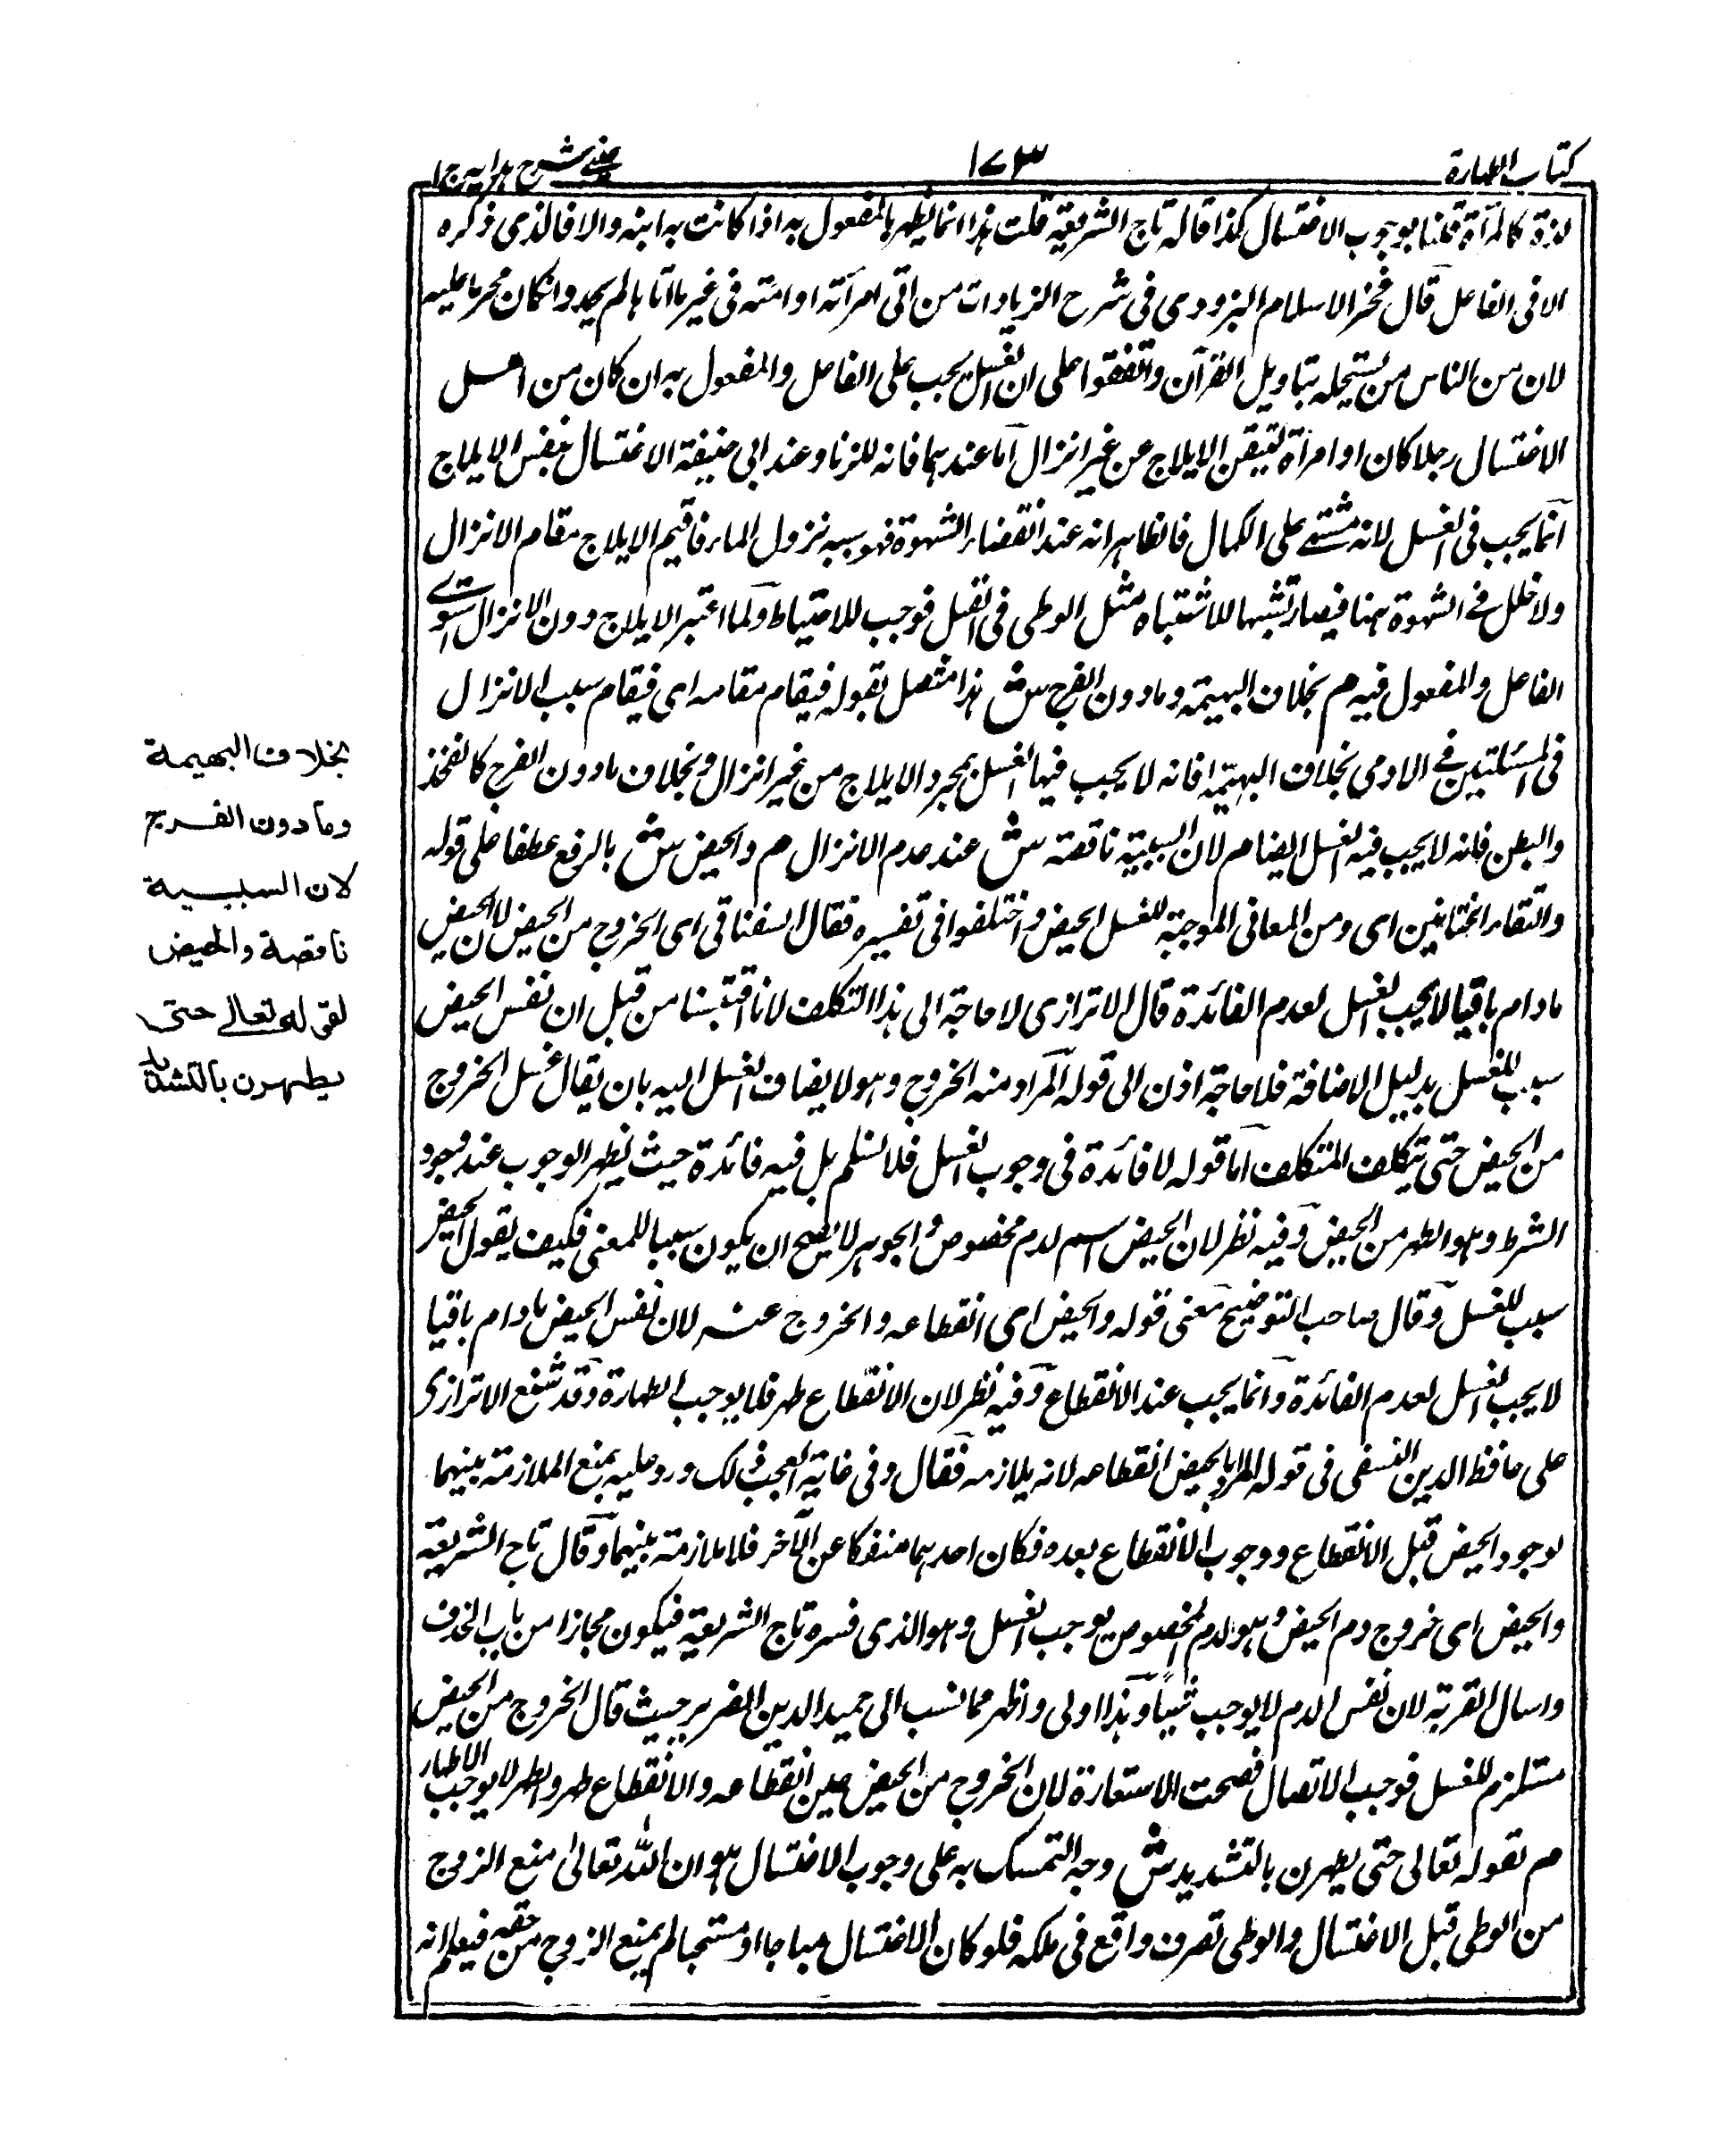 كتاب الطهارة
١٧٣
عيني شرح هداية ج ١
لذة كالمرأة قلنا بوجوب الاغتسال كذا قاله تاج الشريعة قلت هذا انما يظهر بالمفعول به اذا كانت به ابنة والا فالذي ذكره
الا في الفاعل قال فخر الاسلام البزدوي في شرح الزيادات من اتى امرأته او امته في غير ماتاها لم يحد وان كان محرما عليه
لان من الناس من يستحله بتاويل القرآن واتفقوا على ان الغسل يجب على الفاعل والمفعول به ان كان من اهل
الاغتسال رجلا كان او امرأة لتيقن الايلاج من غير انزال اما عندهما فانه للزنا وعند ابي حنيفة الاغتسال بنفس الايلاج
انما يجب في الغسل لانه مشتهى على الكمال فالظاهر انه عند انقضاء الشهوة فهو سببه نزول الماء فاقيم الايلاج مقام الانزال
ولا خلل في الشهوة هنا فيصار تشبها للاشتباه مثل الوطى في القبل فوجب للاحتياط ولما اعتبر الايلاج دون الانزال استوى
الفاعل والمفعول فيه م بخلاف البهيمة وما دون الفرج ش هذا متصل بقوله فيقام مقامه اى فيقام سبب الانزال
في المسئلتين في الادمى بخلاف البهيمة فانه لا يجب فيها الغسل بمجرد الايلاج من غير انزال وبخلاف ما دون الفرج كالفخذ
والبطن فانه لا يجب فيه الغسل ايضا م لان السببية ناقصة ش عند عدم الانزال م والحيض ش بالرفع عطفا على قوله
والتقاء الختانين اى ومن المعانى الموجبة للغسل الحيض واختلفوا في تفسيره فقال السفناقى اى الخروج من الحيض لان الحيض
ما دام باقيا لا يجب الغسل لعدم الفائدة قال الاترازى لا حاجة الى هذا التكلف لانا اقتبسنا من قبل ان نفس الحيض
سبب للغسل بدليل الاضافة فلا حاجة اذن الى قوله المراد منه الخروج وهو لا يضاف الغسل اليه بان يقال غسل الخروج
من الحيض حتى يتكلف المتكلف اما قوله لا فائدة في وجوب الغسل فلا نسلم بل فيه فائدة حيث يظهر الوجوب عند وجود
الشرط وهو الطهر من الحيض وفيه نظر لان الحيض اسم لدم مخصوص والجوهر لا يصح ان يكون سببا للمعنى فكيف يقول الحيض
سبب للغسل وقال صاحب التوضيح معنى قوله والحيض اى انقطاعه والخروج عنه لان نفس الحيض ما دام باقيا
لا يجب الغسل لعدم الفائدة وانما يجب عند الانقطاع وفيه نظر لان الانقطاع طهر فلا يوجب الطهارة وقد شنع الاترازى
على حافظ الدين النسفى في قوله المراد بالحيض انقطاعه لانه يلازمه فقال وفى غاية العجب ذلك ورد عليه بمنع الملازمة بينهما
لوجود الحيض قبل الانقطاع ووجوب الانقطاع بعده فكان احدهما منفكا عن الآخر فلا ملازمة بينهما وقال تاج الشريعة
والحيض اى خروج دم الحيض وهو الدم المخصوص يوجب الغسل وهو الذى فسره تاج الشريعة فيكون مجازا من باب الحذف
واسال القرية لان نفس الدم لا يوجب شيئا وهذا اولى واظهر مما نسب الى حميد الدين الضرير حيث قال الخروج من الحيض
مستلزم للغسل فوجب الاتصال فصحت الاستعارة لان الخروج من الحيض حين انقطاعه والانقطاع طهر والطهر لا يوجب الاطهار
م لقوله تعالى حتى يطهرن بالتشديد ش وجه التمسك به على وجوب الاغتسال هو ان الله تعالى منع الزوج
من الوطى قبل الاغتسال والوطى تصرف واقع في ملكه فلو كان الاغتسال مباحا او مستحبا لم يمنع الزوج من حقه فيعلم انه
بخلاف البهيمة
وما دون الفرج
لان السببية
ناقصة والحيض
لقوله تعالى حتى
يطهرن بالتشديد